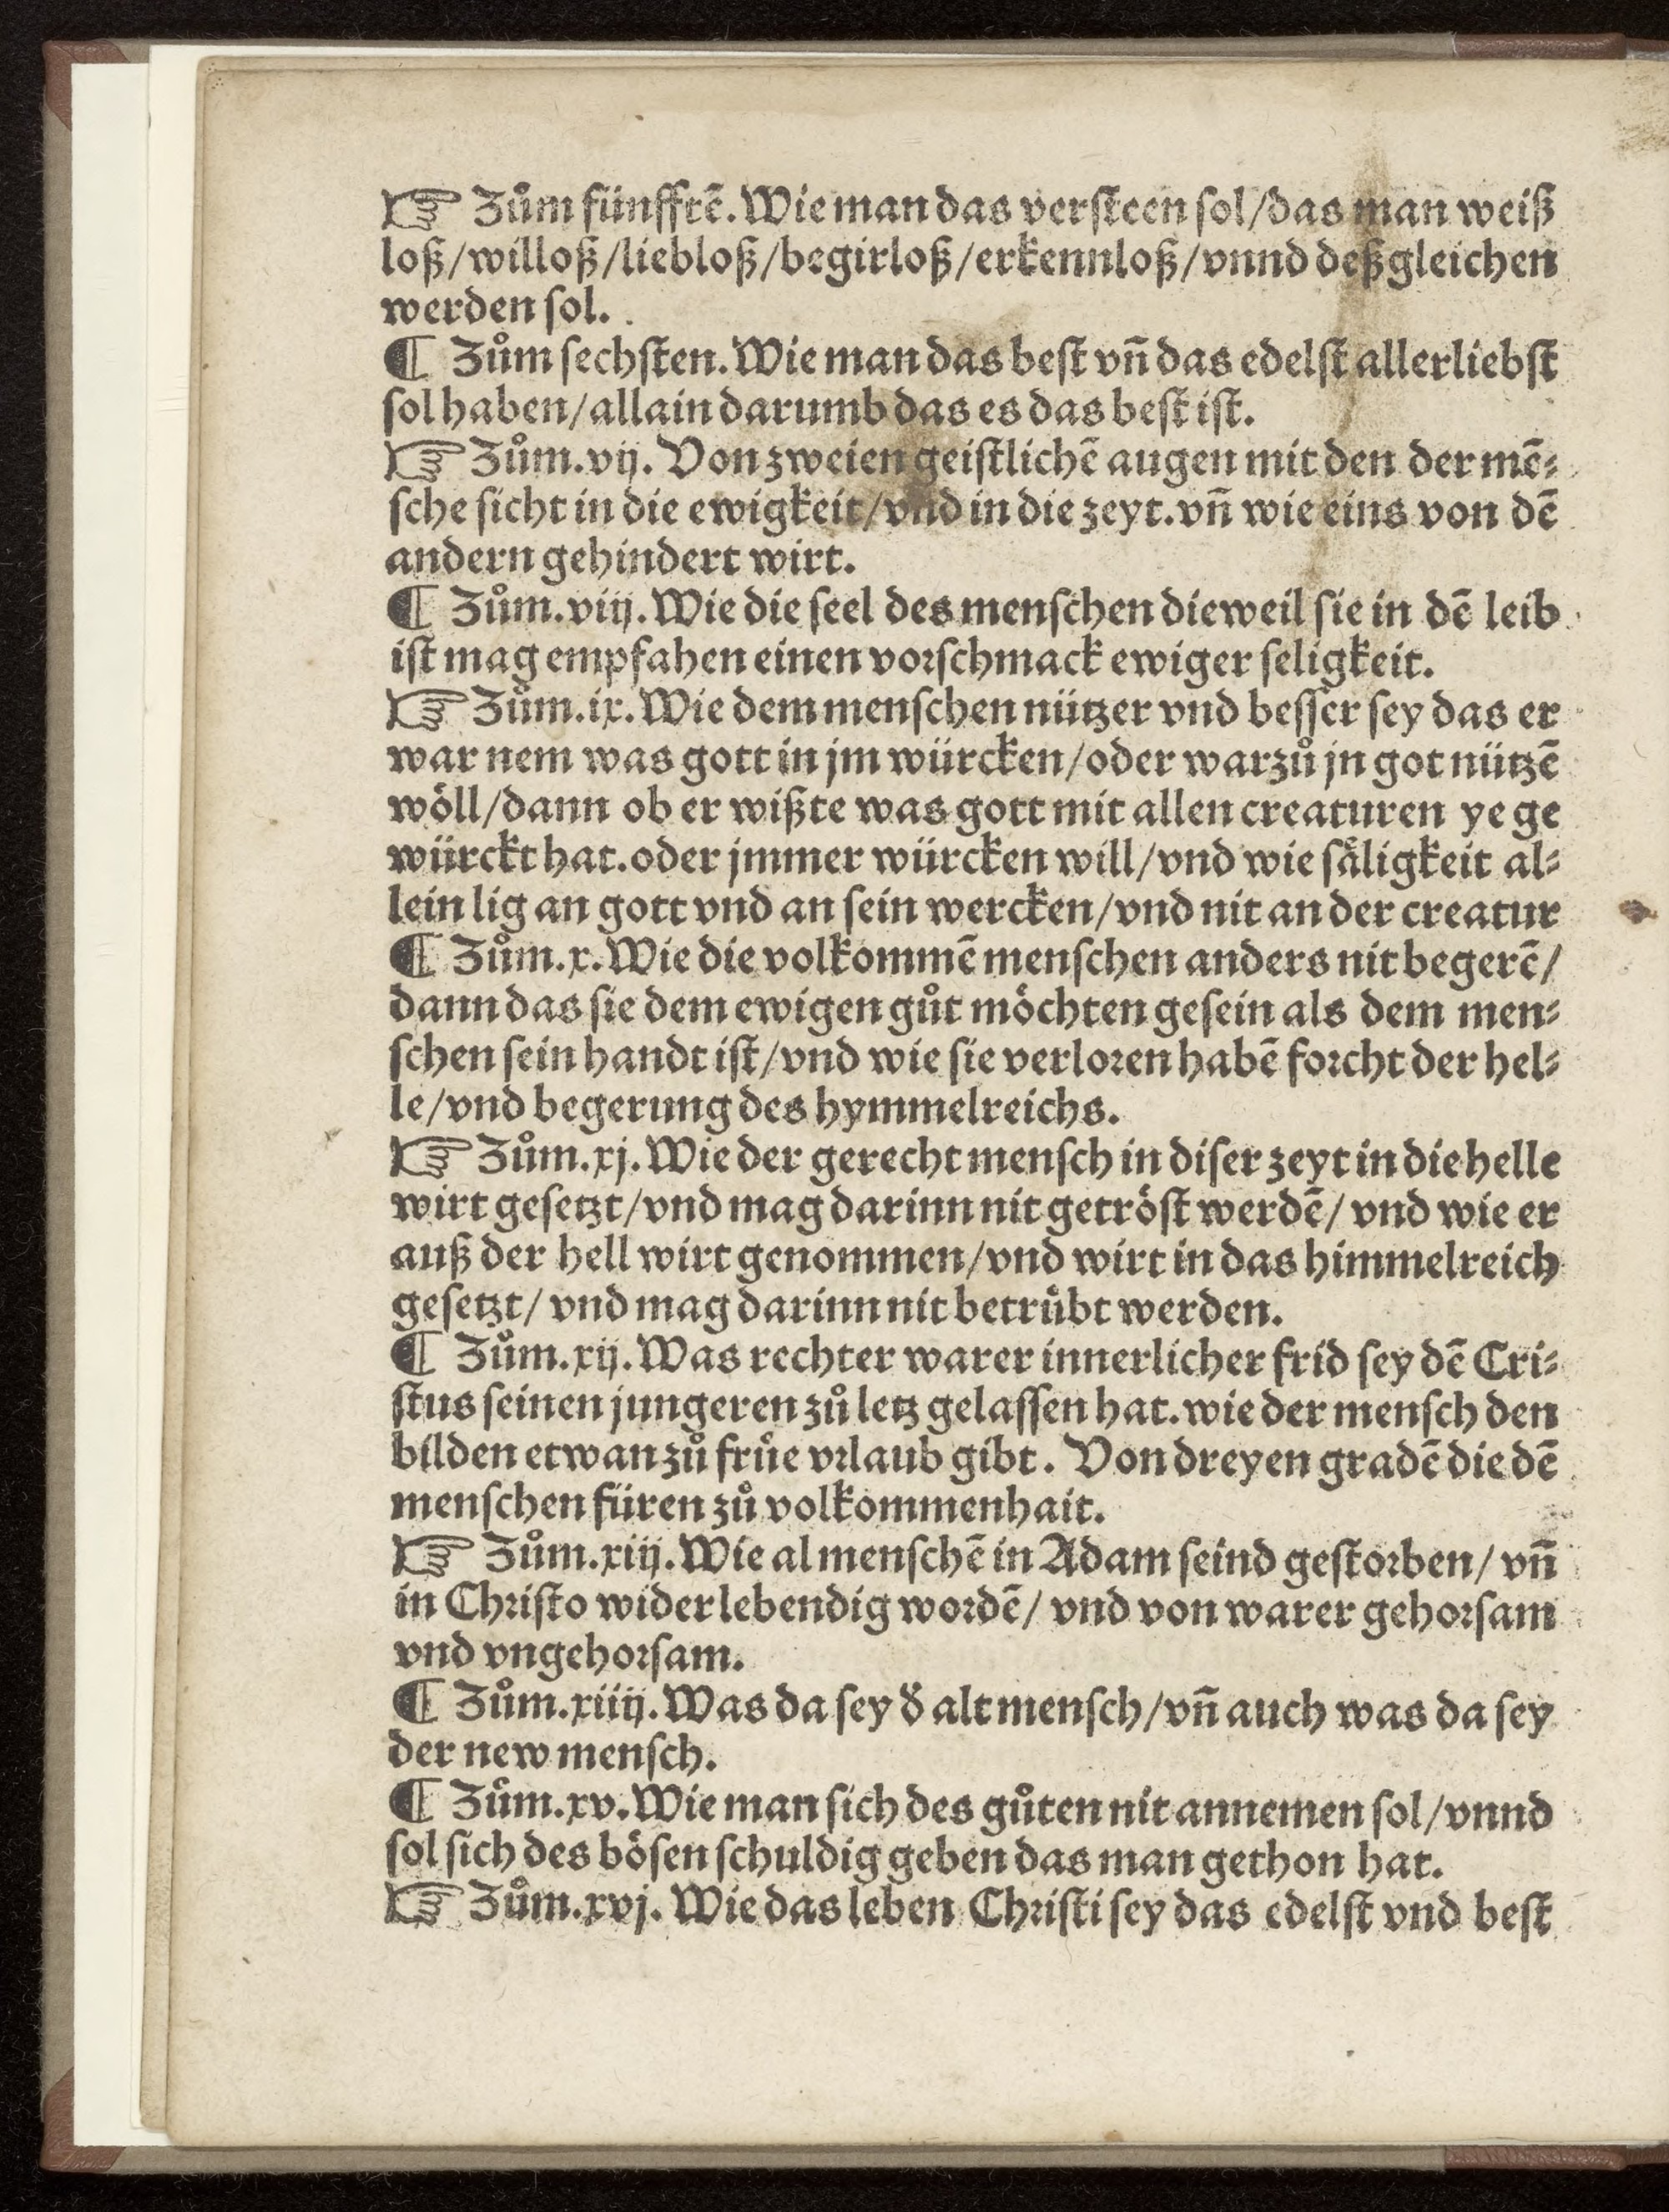 ☞ Zům fünfftẽ. Wie man das versteen sol/das man weiß
loß/willoß/liebloß/begirloß/erkennloß/vnnd deßgleichen
werden sol.
¶ Zům sechsten. Wie man das best vñ das edelst allerliebst
sol haben/allain darumb das es das best ist.
☞ Zům.vij. Von zweien geistlichẽ augen mit den der mẽ⸗
sche sicht in die ewigkeit/vnd in die zeyt.vñ wie eins von dẽ
andern gehindert wirt.
¶ Zům.viij. Wie die seel des menschen dieweil sie in dẽ leib
ist mag empfahen einen vorschmack ewiger seligkeit.
☞ Zům.ix. Wie dem menschen nützer vnd besser sey das er
war nem was gott in jm würcken/oder warzů jn got nützẽ
wöll/dann ob er wißte was gott mit allen creaturen ye ge
würckt hat.oder jmmer würcken will/vnd wie säligkeit al⸗
lein lig an gott vnd an sein wercken/vnd nit an der creatur
¶ Zům.x. Wie die volkommẽ menschen anders nit begerẽ/
dann das sie dem ewigen gůt möchten gesein als dem men⸗
schen sein handt ist/vnd wie sie verloren habẽ forcht der hel⸗
le/vnd begerung des hymmelreichs.
☞ Zům.xj. Wie der gerecht mensch in diser zeyt in die helle
wirt gesetzt/vnd mag darinn nit getröst werdẽ/ vnd wie er
auß der hell wirt genommen/vnd wirt in das himmelreich
gesetzt/ vnd mag darinn nit betrůbt werden.
¶ Zům.xij. Was rechter warer innerlicher frid sey dẽ Cri⸗
stus seinen jungeren zů letz gelassen hat.wie der mensch den
bilden etwan zů frůe vrlaub gibt. Von dreyen gradẽ die dẽ
menschen füren zů volkommenhait.
☞ Zům.xiij. Wie al menschẽ in Adam seind gestorben/ vñ
in Christo wider lebendig wordẽ/ vnd von warer gehorsam
vnd vngehorsam.
¶ Zům.xiiij. Was da sey d̃ alt mensch/vñ auch was da sey
der new mensch.
¶ Zům.xv. Wie man sich des gůten nit annemen sol/vnnd
sol sich des bösen schuldig geben das man gethon hat.
☞ Zům.xvj. Wie das leben Christi sey das edelst vnd best